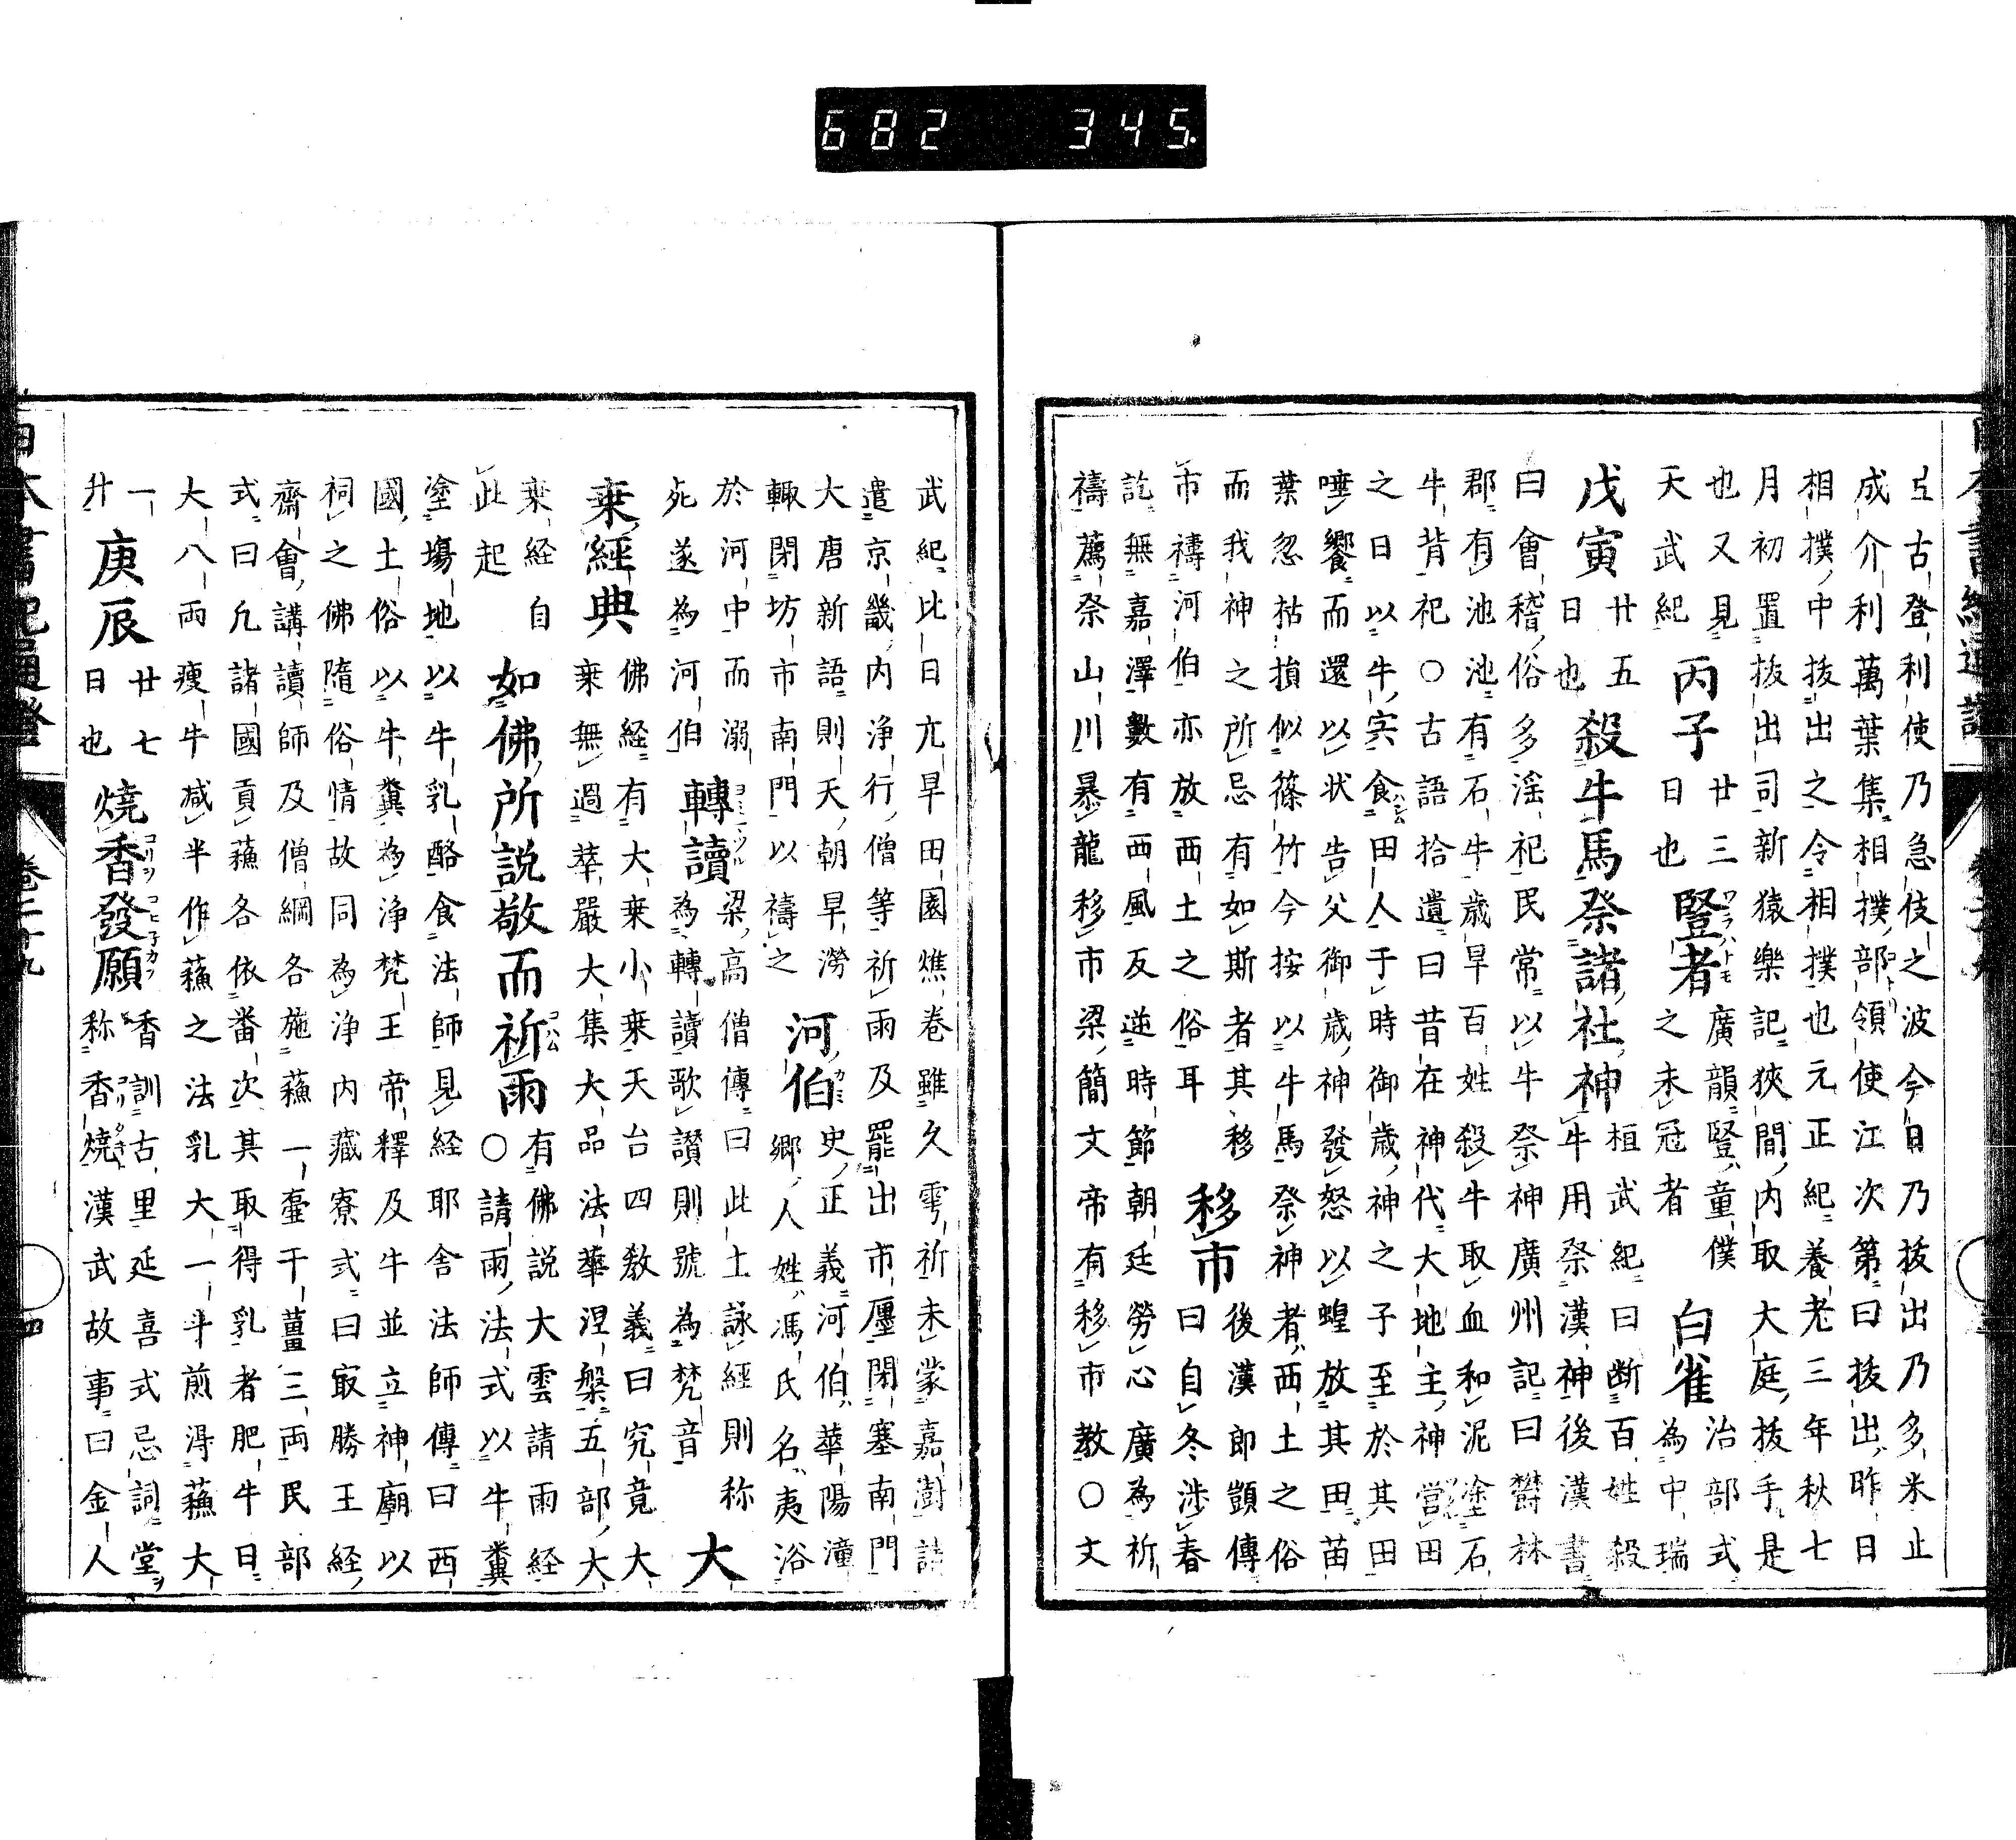 682 345
ヨ古登利使乃急伎之波今日乃拔出乃多米止
成介利萬葉集相撲部領使江次第曰拔出昨日
相撲中拔出之令相撲也元正紀養老三年秋七
月初置拔出司新猿樂記狹間内取大庭拔手是
也又見
天武紀
丙子
廿三
日也
豎者
廣韻豎童僕
之未冠者
白雀
治部式
為中瑞
戊寅
廿五
日也
殺牛馬祭諸社神
桓武紀曰断百姓殺
牛用祭漢神後漢書
曰會稽俗多淫祀民常以牛祭神廣州記曰欝林
郡有池池有石牛歳旱百姓殺牛取血和泥塗石
牛背祀○古語拾遺曰昔在神代大地主神営田
之日以牛宍食田人于時御歳神之子至於其田
唾饗而還以状告父御歳神發怒以蝗放其田苗
葉忽枯損似篠竹今按以牛馬祭神者西土之俗
而我神之所忌有如斯者其移
市禱河伯亦放西土之俗耳
移市
後漢郎顗傳
曰自冬涉春
訖無嘉澤數有西風反逆時節朝廷勞心廣為祈
禱薦祭山川暴龍移市梁簡文帝有移市教○文
武紀比日亢旱田園燋卷雖久雩祈未蒙嘉澍請
遣京畿内浄行僧等祈雨及罷出市廛閉塞南門
大唐新語則天朝旱澇
輙閉坊市南門以禱之
河伯
史正義河伯華陽潼
郷人姓馮氏名夷浴
於河中而溺
死遂為河伯
轉讀
梁高僧傳曰此土詠經則称
為轉讀歌讃則號為梵音
大
乗經典
佛経有大乗小乗天台四教義曰究竟大
乗無過華嚴大集大品法華涅槃五部大
乗経自
此起
如佛所説敬而祈雨
有佛説大雲請雨経
○請雨法式以牛糞
塗塲地以牛乳酪食法師見経耶舎法師傳曰西
國土俗以牛糞為浄梵王帝釋及牛並立神廟以
祠之佛隨俗情故同為浄内藏寮式曰㝡勝王経
齋會講讀師及僧綱各施蘓一壷干薑三両民部
式曰凡諸國貢蘓各依番次其取得乳者肥牛日
大八両瘦牛减半作蘓之法乳大一斗煎得蘓大
一
升
庚辰
廿七
日也
燒香發願
香訓古里延喜式忌詞堂ヲ
称香燒漢武故事曰金人
日本書紀通證
卷二十九
四